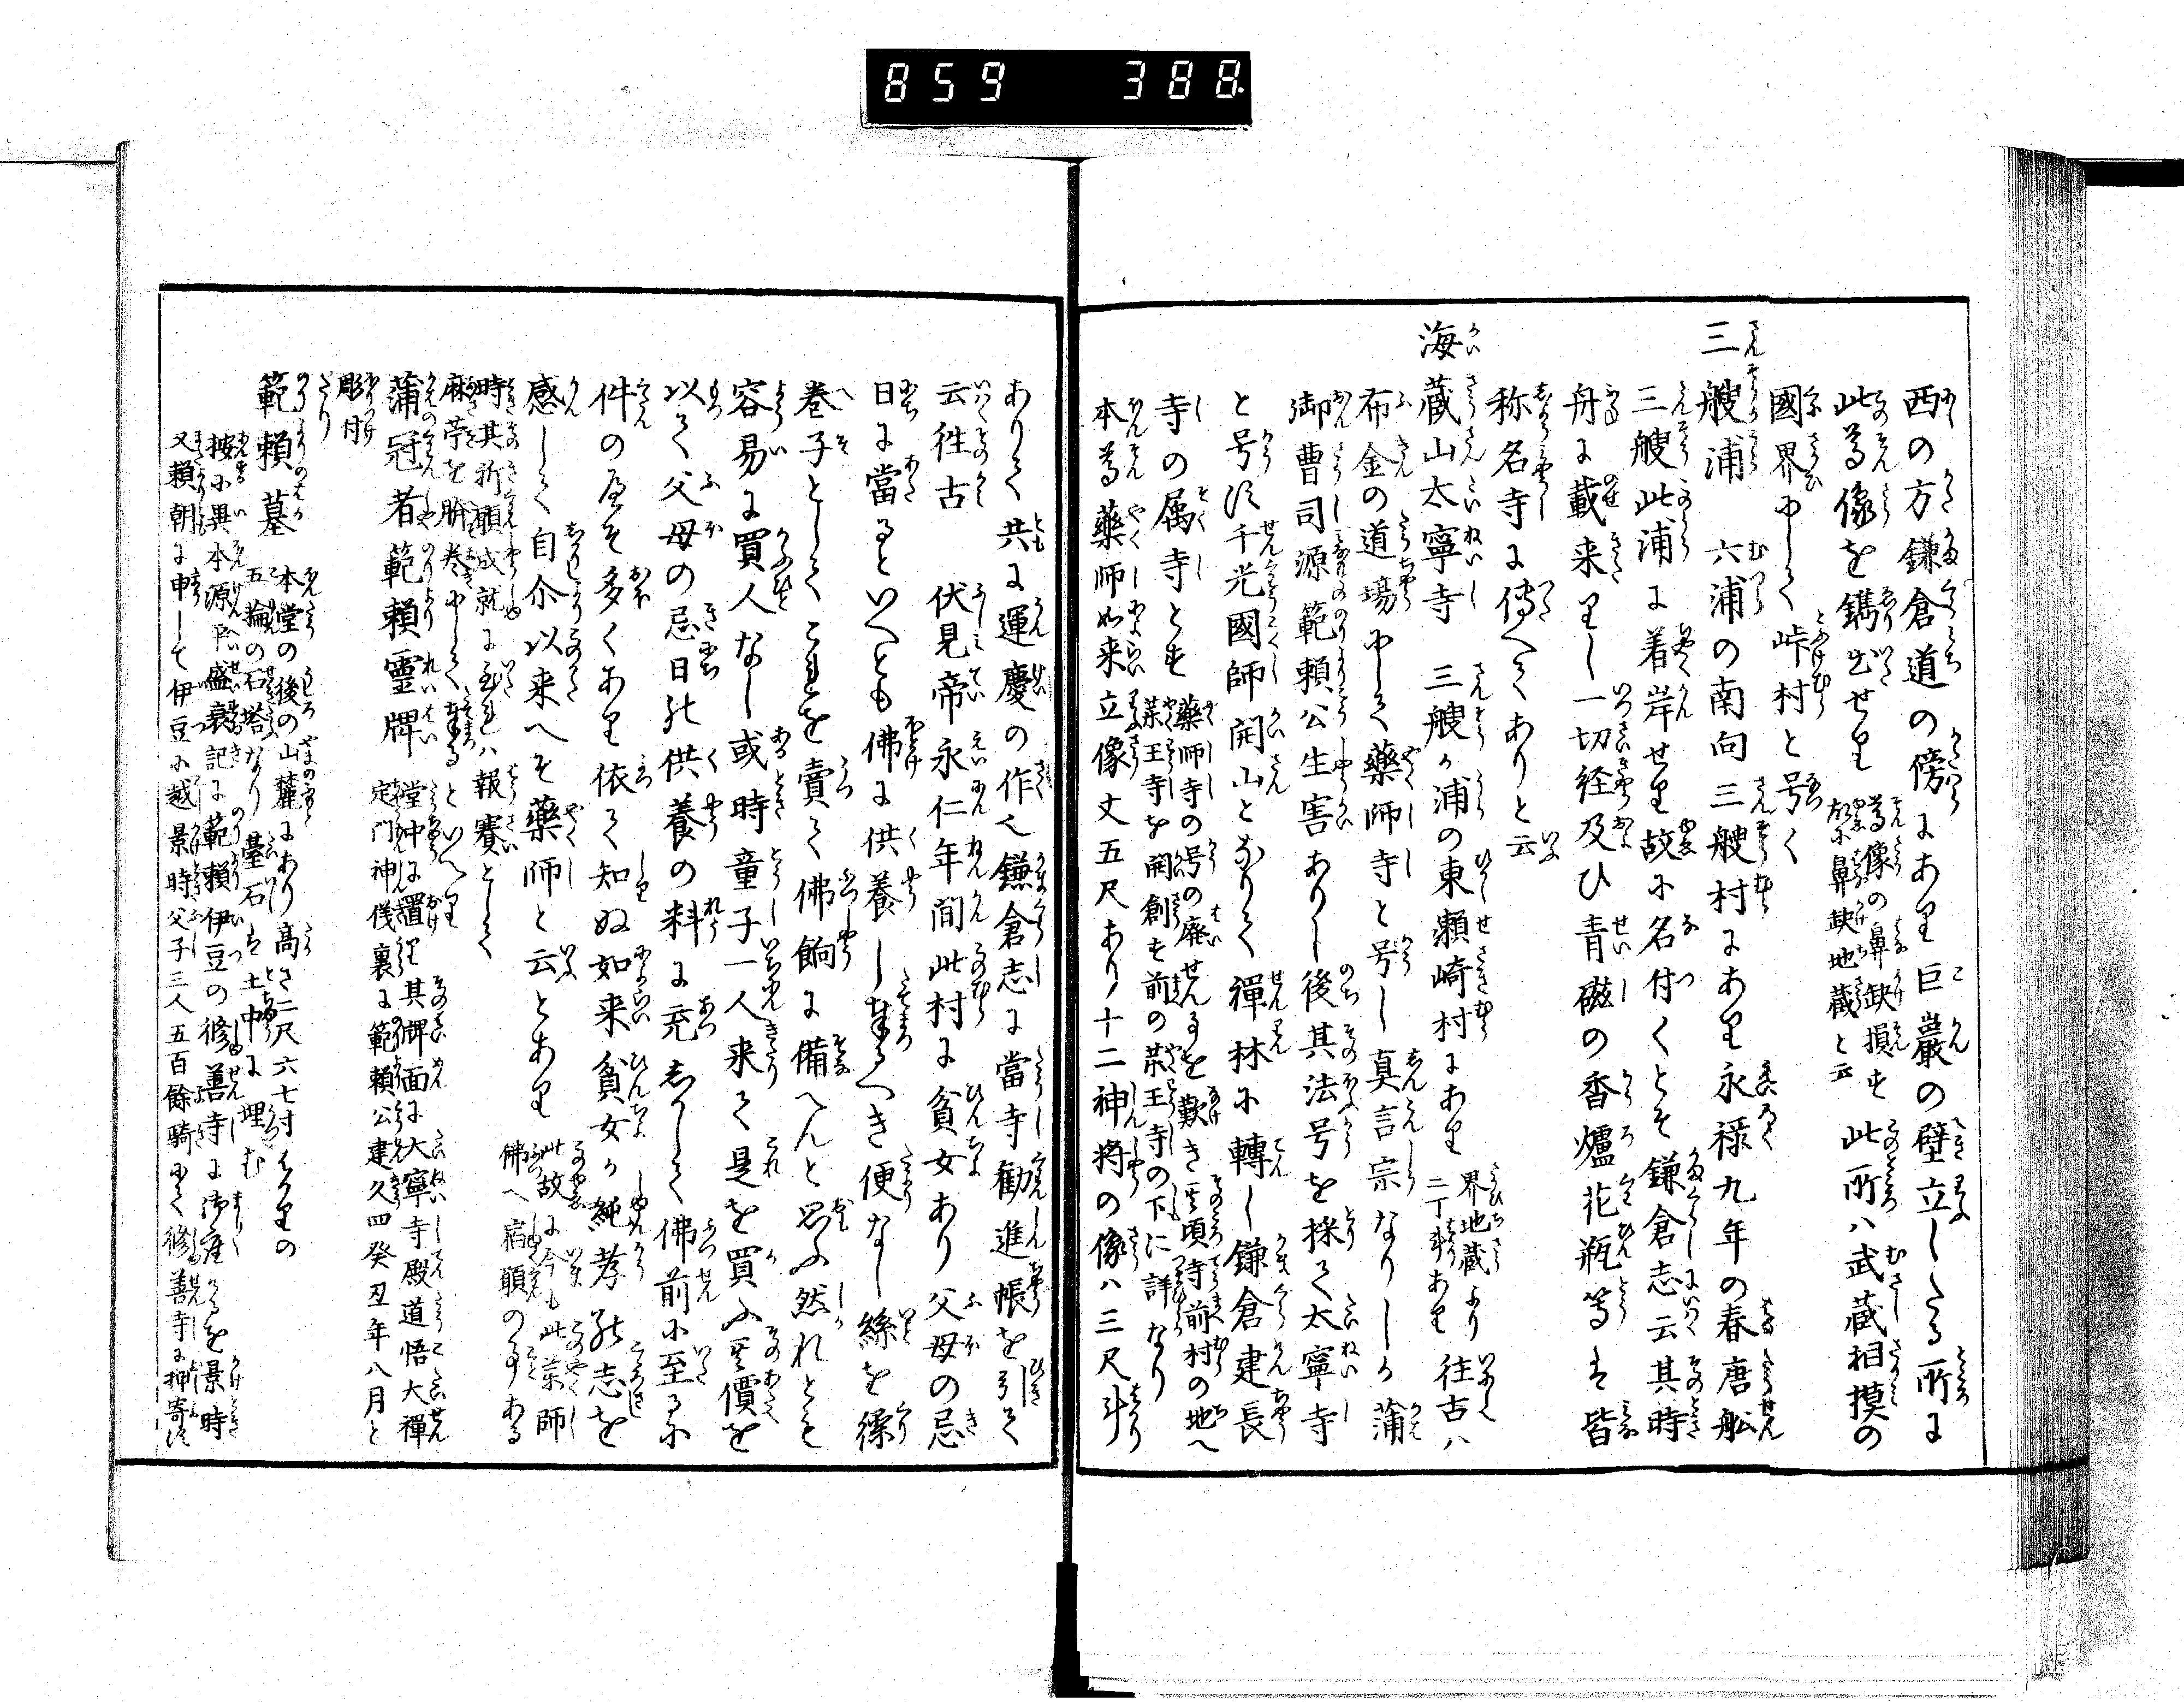 859 388
西の方鎌倉道の傍にあり巨巌の壁立したる所に
此尊像を鐫出せり 尊像の鼻缺損す
故に鼻缺地蔵と云 此所ハ武蔵相摸の
國界にして峠村と号く
三艘浦 六浦の南向三艘村にあり永禄九年の春唐舩
三艘此浦に着岸せり故に名付くとそ鎌倉志云其時
舟に載来りし一切経及ひ青磁の香爐花瓶等は皆
称名寺に傳へてありと云
海蔵山太寧寺 三艘ヶ浦の東瀬崎村にあり 界地蔵より
二丁斗あり 往古ハ
布金の道場にして藥師寺と号し真言宗なりしか蒲
御曹司源範頼公生害ありし後其法号を採て太寧寺
と号す千光國師開山となりて禅林に轉し鎌倉建長
寺の属寺とす 藥師寺の号の廃せんことを歎き其頃寺前村の地へ
薬王寺を開創す前の薬王寺の下に詳なり
本尊藥師如来立像丈五尺あり十二神将の像ハ三尺斗
ありて共に運慶の作也鎌倉志に當寺勧進帳を引て
云往古 伏見帝永仁年間此村に貧女あり父母の忌
日に當るといへとも佛に供養し奉るへき便なし絲を繰
巻子としてこれを賣て佛餉に備へんと思ふ然れとも
容易に買人なし或時童子一人来て是を買ふ其價を
以て父母の忌日の供養の料に充しかして佛前に至るに
件の巻そ多くあり依て知ぬ如来貧女か純孝の志を
感して自尓以来へそ藥師と云とあり 此故に今も此薬師
佛へ病願の事ある
時其祈願成就に至れハ報賽として
麻苧を綛巻にして奉るといへり
蒲冠者範頼靈牌 堂中に置り其牌面に大寧寺殿道悟大禅
定門神儀裏に範頼公建久四癸丑年八月と
彫付
たり
範頼墓 本堂の後の山麓にあり高さ二尺六七寸はかりの
五輪の石塔なり基石は土中に埋む
按に異本源平盛衰記に範頼伊豆の修善寺に御座けるを景時
又頼朝に申して伊豆に越景時父子三人五百餘騎にて修善寺に押寄す